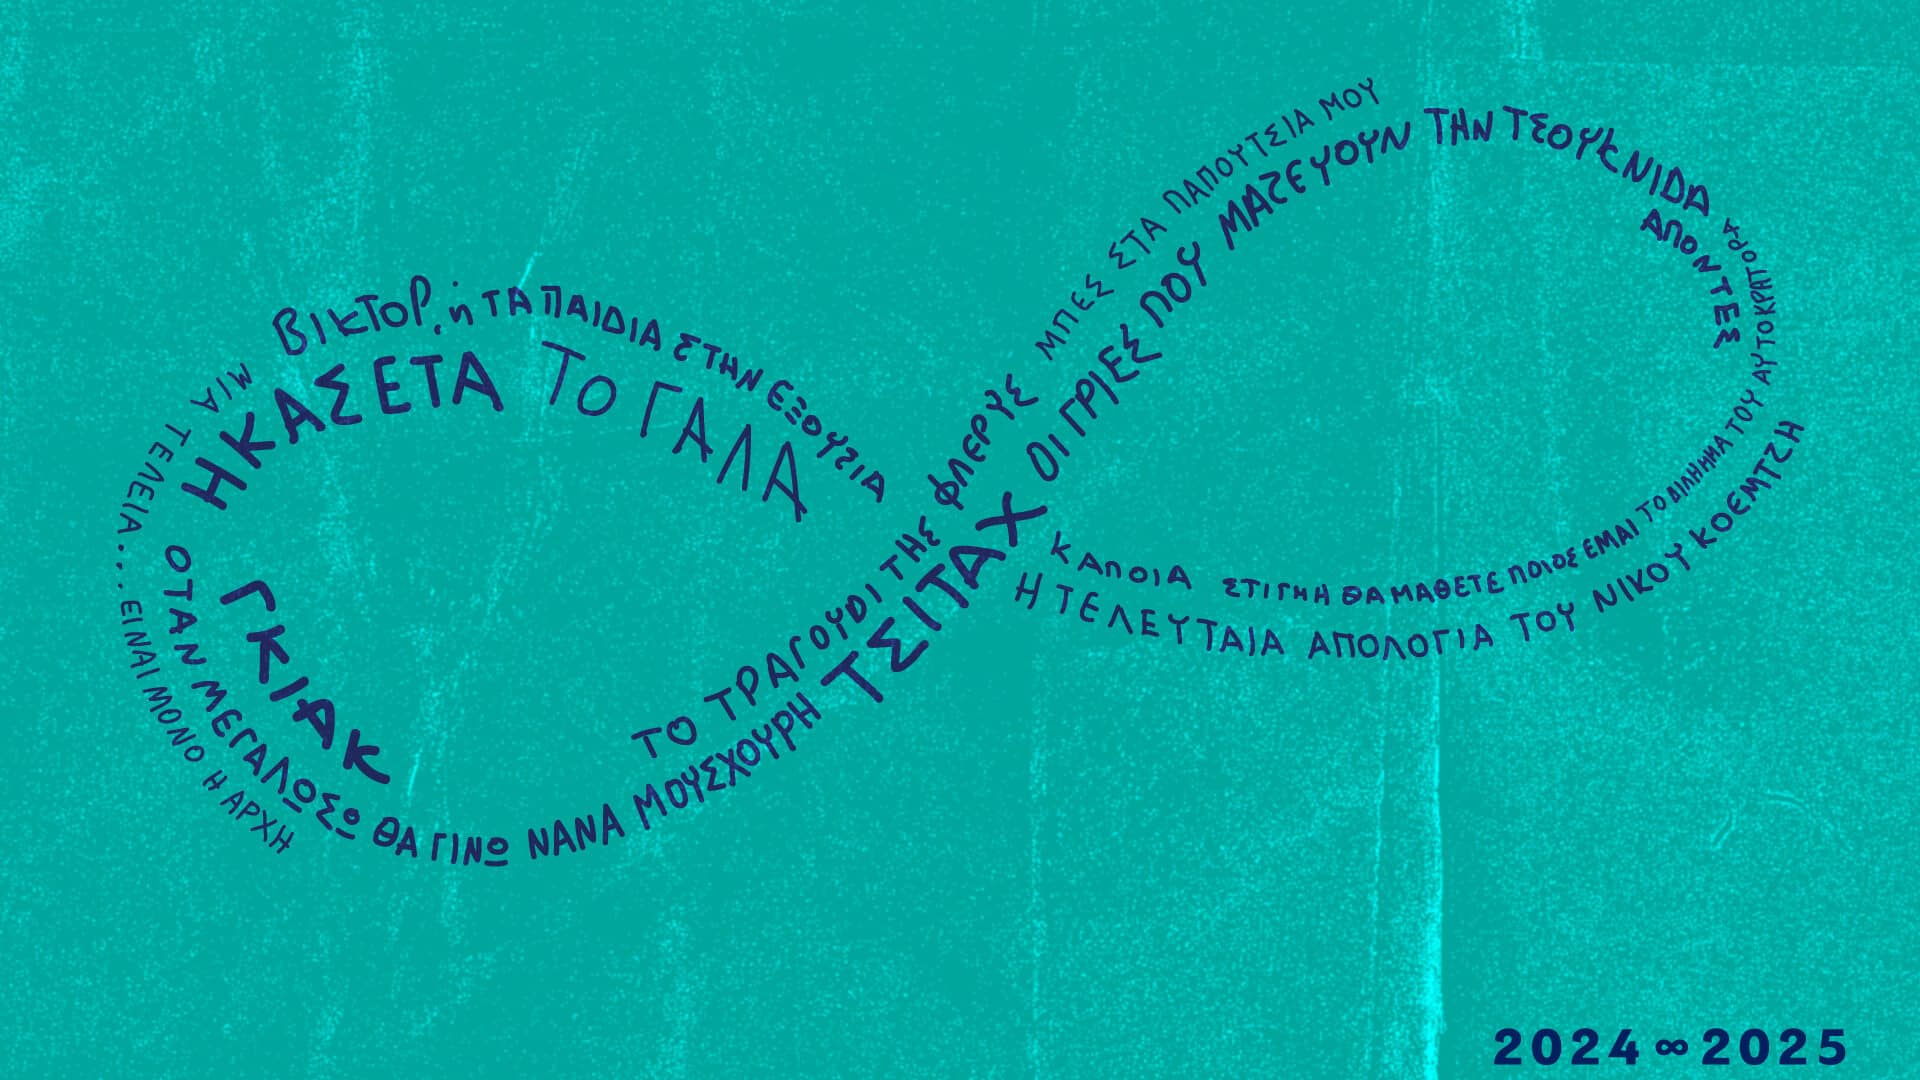 ΒΙΚΤΟΡ, ή ΤΑ ΠΑΙΔΙΑ ΣΤΗΝ ΕΞΟΥΣΙΑ
Η ΚΑΣΕΤΑ
ΤΟ ΓΑΛΑ
ΜΙΑ ΤΕΛΕΙΑ.... ΕΙΝΑΙ ΜΟΝΟ Η ΑΡΧΗ
ΟΤΑΝ ΜΕΓΑΛΩΣΩ ΘΑ ΓΙΝΩ ΝΑΝΑ ΜΟΥΣΧΟΥΡΗ
ΓΚΙΑΚ
ΤΟ ΤΡΑΓΟΥΔΙ ΤΗΣ ΦΛΕΡΥΣ
ΤΣΙΤΑΧ
ΜΠΕΣ ΣΤΑ ΠΑΠΟΥΤΣΙΑ ΜΟΥ
ΟΙ ΓΡΙΕΣ ΠΟΥ ΜΑΖΕΥΟΥΝ ΤΗΝ ΤΣΟΥΚΝΙΔΑ
ΑΠΟΝΤΕΣ
ΤΟ ΔΙΛΗΜΜΑ ΤΟΥ ΑΥΤΟΚΡΑΤΟΡΑ
ΚΑΠΟΙΑ ΣΤΙΓΜΗ ΘΑ ΜΑΘΕΤΕ ΠΟΙΟΣ ΕΜΑΙ
Η ΤΕΛΕΥΤΑΙΑ ΑΠΟΛΟΓΙΑ ΤΟΥ ΝΙΚΟΥ ΚΟΕΜΤΖΗ
2024∞2025